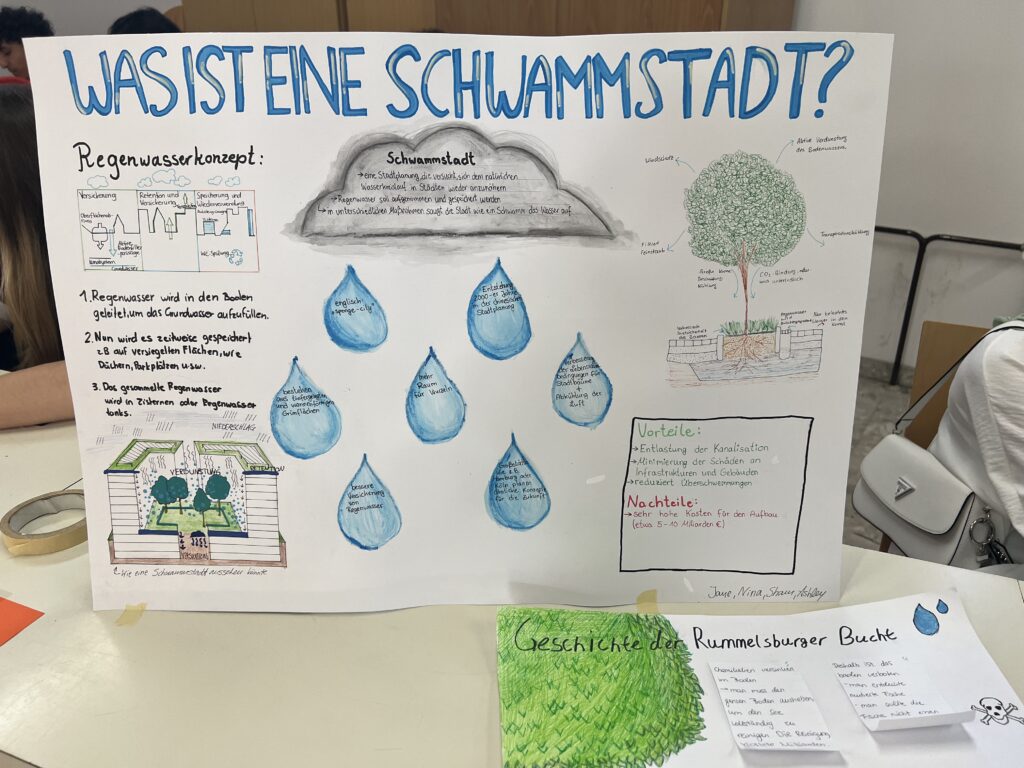 WAS IST EINE SCHWAMMSTADT?
Regenwasserkonzept:
Versickerung
Retention und
Versickerung
Speicherung und
Wiederverwendung
Grundwasser
WC-Spülung
1. Regenwasser wird in den Boden
geleitet, um das Grundwasser aufzufüllen.
2. Nun wird es zeitweise gespeichert
z.B auf versiegelten Flächen, wie
Dächern, Parkplätzen usw.
3. Das gesammelte Regenwasser
wird in Zisternen oder Regenwasser
tanks.
NIEDERSCHLAG
VERDUNSTUNG
Wie eine Schwammstadt aussehen könnte
Schwammstadt
→ eine Stadtplanung, die versucht, sich dem natürlichen
Wasserkreislauf in Städten wieder anzunähern
→ Regenwasser soll aufgenommen und gespeichert werden
↳ in unterschiedlichen Maßnahmen saugt die Stadt wie ein Schwamm das Wasser auf
englisch:
"sponge-city"
Entstehung
2000-er Jahre
in der chinesischen
Stadtplanung
bestehen
aus tiefergelegten
und wannenförmigen
Grünflächen
mehr
Raum
für Wurzeln
Verbesserung
der Lebens
bedingungen für
Stadtbäume
+
Abkühlung der
Luft
bessere
Versickerung
von
Regenwasser
Großstädte
wie z.B.
Hamburg oder
Köln planen
ähnliche Konzepte
für die Zukunft
Windschutz
Aktive Verdunstung
des Bodenwassers
Filtert
Feinstaub
Transpirationskühlung
CO₂-Bindung, ober
und unterirdisch
Vorteile:
→ Entlastung der Kanalisation
→ Minimierung der Schäden an
Infrastrukturen und Gebäuden
→ reduziert Überschwemmungen
Nachteile:
→ sehr hohe Kosten für den Aufbau
(etwa 5-10 Miliarden €)
Jane, Nina, Sham, Ashley
Geschichte der Rummelsburger Bucht
Chemikalien versinken
im Boden
→ man muss den
ganzen Boden ausheben
um den See
vollständig zu
reinigen. Die Reinigung
Deshalb ist das
baden verboten
- man entdeckte
Fische
- man sollte die
Fische nicht essen